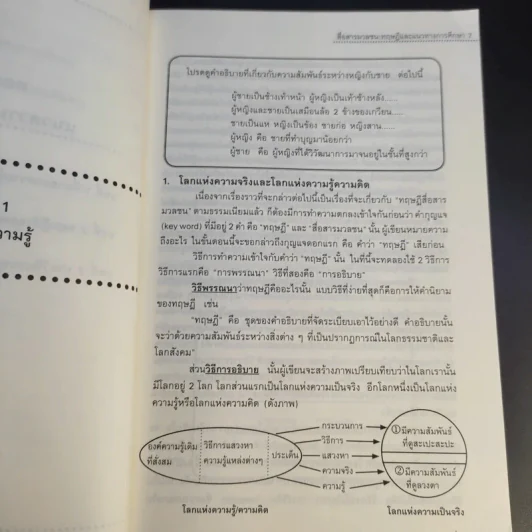 สื่อสารมวลชน:ทฤษฎีและแนวทางการศึกษา 7
โปรดดูคำอธิบายที่เกี่ยวกับความสัมพันธ์ระหว่างหญิงกับชาย ต่อไปนี้
ผู้ชายเป็นช้างเท้าหน้า ผู้หญิงเป็นเท้าช้างหลัง.....
ผู้หญิงและชายเป็นเสมือนล้อ 2 ข้างของเกวียน.....
ชายเป็นแห หญิงเป็นข้อง ชายก่อ หญิงสาน.....
ผู้หญิง คือ ชายที่ทำบุญมาน้อยกว่า
ผู้ชาย คือ ผู้หญิงที่ได้วิวัฒนาการมาจนอยู่ในชั้นที่สูงกว่า
1
วามรู้
1. โลกแห่งความจริงและโลกแห่งความรู้ความคิด
เนื่องจากเรื่องราวที่จะกล่าวต่อไปนี้เป็นเรื่องที่จะเกี่ยวกับ "ทฤษฎีสื่อสาร
มวลชน" ตามธรรมเนียมแล้ว ก็ต้องมีการทำความตกลงเข้าใจกันก่อนว่า คำกุญแจ
(key word) ที่มีอยู่ 2 คำ คือ "ทฤษฎี" และ "สื่อสารมวลชน" นั้น ผู้เขียนหมายความ
ถึงอะไร ในขั้นตอนนี้จะขอกล่าวถึงกุญแจดอกแรก คือ คำว่า "ทฤษฎี" เสียก่อน
วิธีการทำความเข้าใจกับคำว่า "ทฤษฎี" นั้น ในที่นี้จะทดลองใช้ 2 วิธีการ
วิธีการแรกคือ "การพรรณนา" วิธีที่สองคือ "การอธิบาย"
วิธีพรรณนาว่าทฤษฎีคืออะไรนั้น แบบวิธีที่ง่ายที่สุดก็คือการให้คำนิยาม
ของทฤษฎี เช่น
"ทฤษฎี" คือ ชุดของคำอธิบายที่จัดระเบียบเอาไว้อย่างดี คำอธิบายนั้น
จะว่าด้วยความสัมพันธ์ระหว่างสิ่งต่าง ๆ ที่เป็นปรากฏการณ์ในโลกธรรมชาติและ
โลกสังคม"
ส่วนวิธีการอธิบาย นั้นผู้เขียนจะสร้างภาพเปรียบเทียบว่าในโลกเรานั้น
มีโลกอยู่ 2 โลก โลกส่วนแรกเป็นโลกแห่งความเป็นจริง อีกโลกหนึ่งเป็นโลกแห่ง
ความรู้หรือโลกแห่งความคิด (ดังภาพ)
องค์ความรู้เดิม
ที่สั่งสม
วิธีการแสวงหา
ความรู้แหล่งต่างๆ
ประเด็น
กระบวนการ
วิธีการ
แสวงหา
ความจริง
ความรู้
①มีความสัมพันธ์
ที่ดูสะเปะสะปะ
②มีความสัมพันธ์
ที่ดูลวงตา
โลกแห่งความรู้/ความคิด
โลกแห่งความเป็นจริง